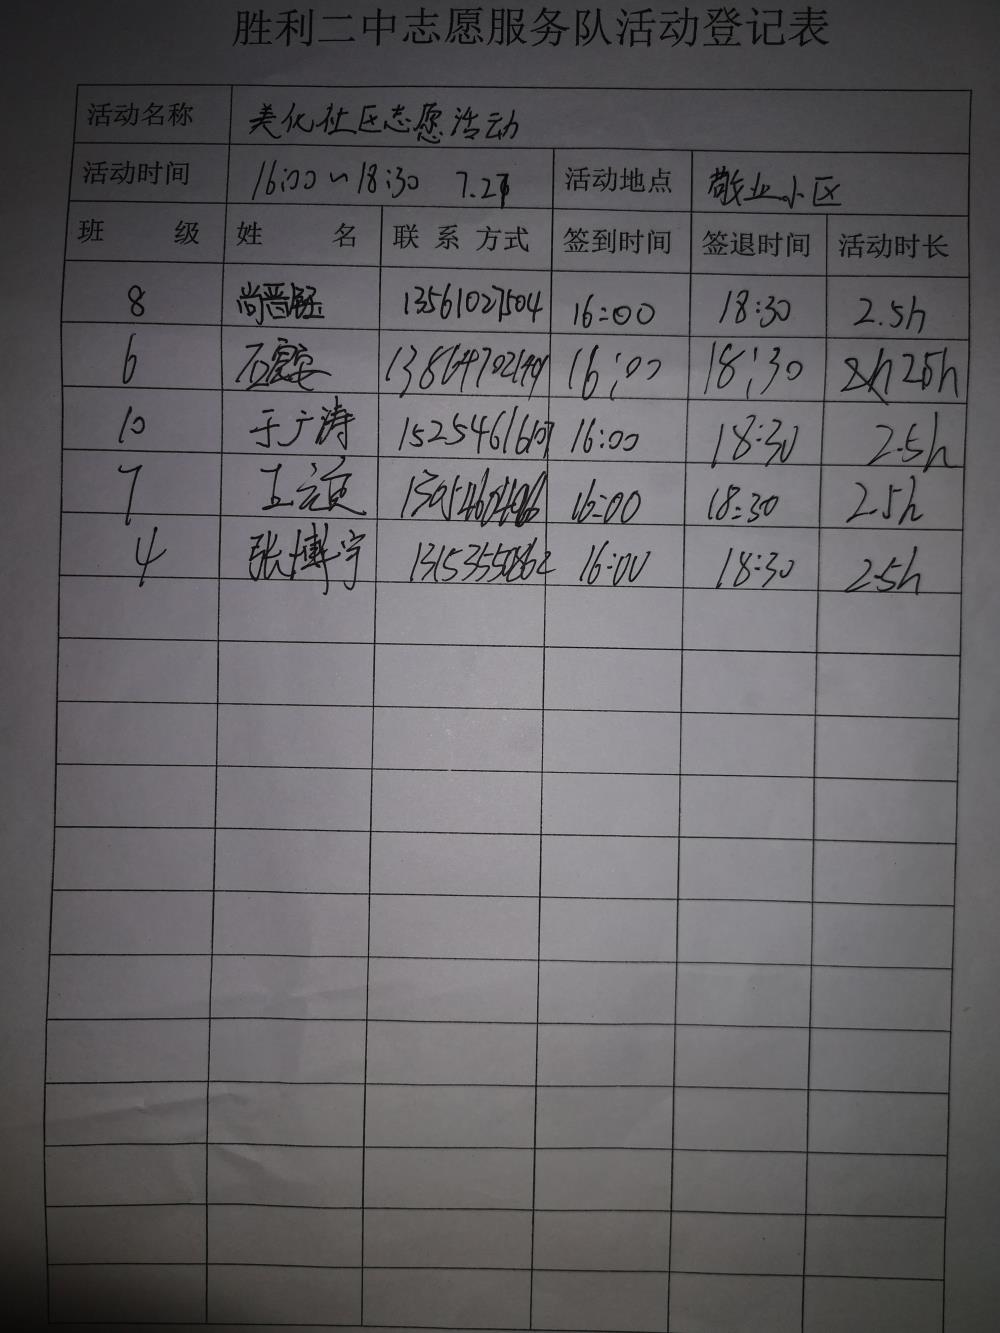 胜利二中志愿服务队活动登记表
活动名称 美化社区志愿活动
活动时间 16:00~18:30 活动地点 敬业小区
班 级 姓 名 联 系 方式 签到时间 签退时间 活动时长
8 尚晋 13561027504 16:00 18:30 2.5h
6 石 16:00 18:30 2.5h
10 于广涛 16:00 18:30 2.5h
7 王 16:00 18:30 2.5h
4 张博宇 16:00 18:30 2.5h